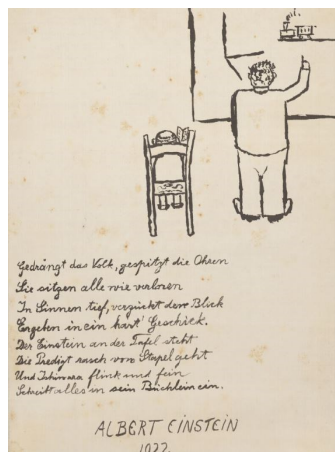 Gedrängt das Volk, gespitzt die Ohren
Sie sitzen alle wie verloren
In Sinnen tief, verzückt der Blick
Ergeben in ein hart' Geschick.
Der Einstein an der Tafel steht
Die Predigt rasch vom Stapel geht
Und Ishiwara flink und fein
Schreibt alles in sein Büchlein ein.
ALBERT EINSTEIN
1922.